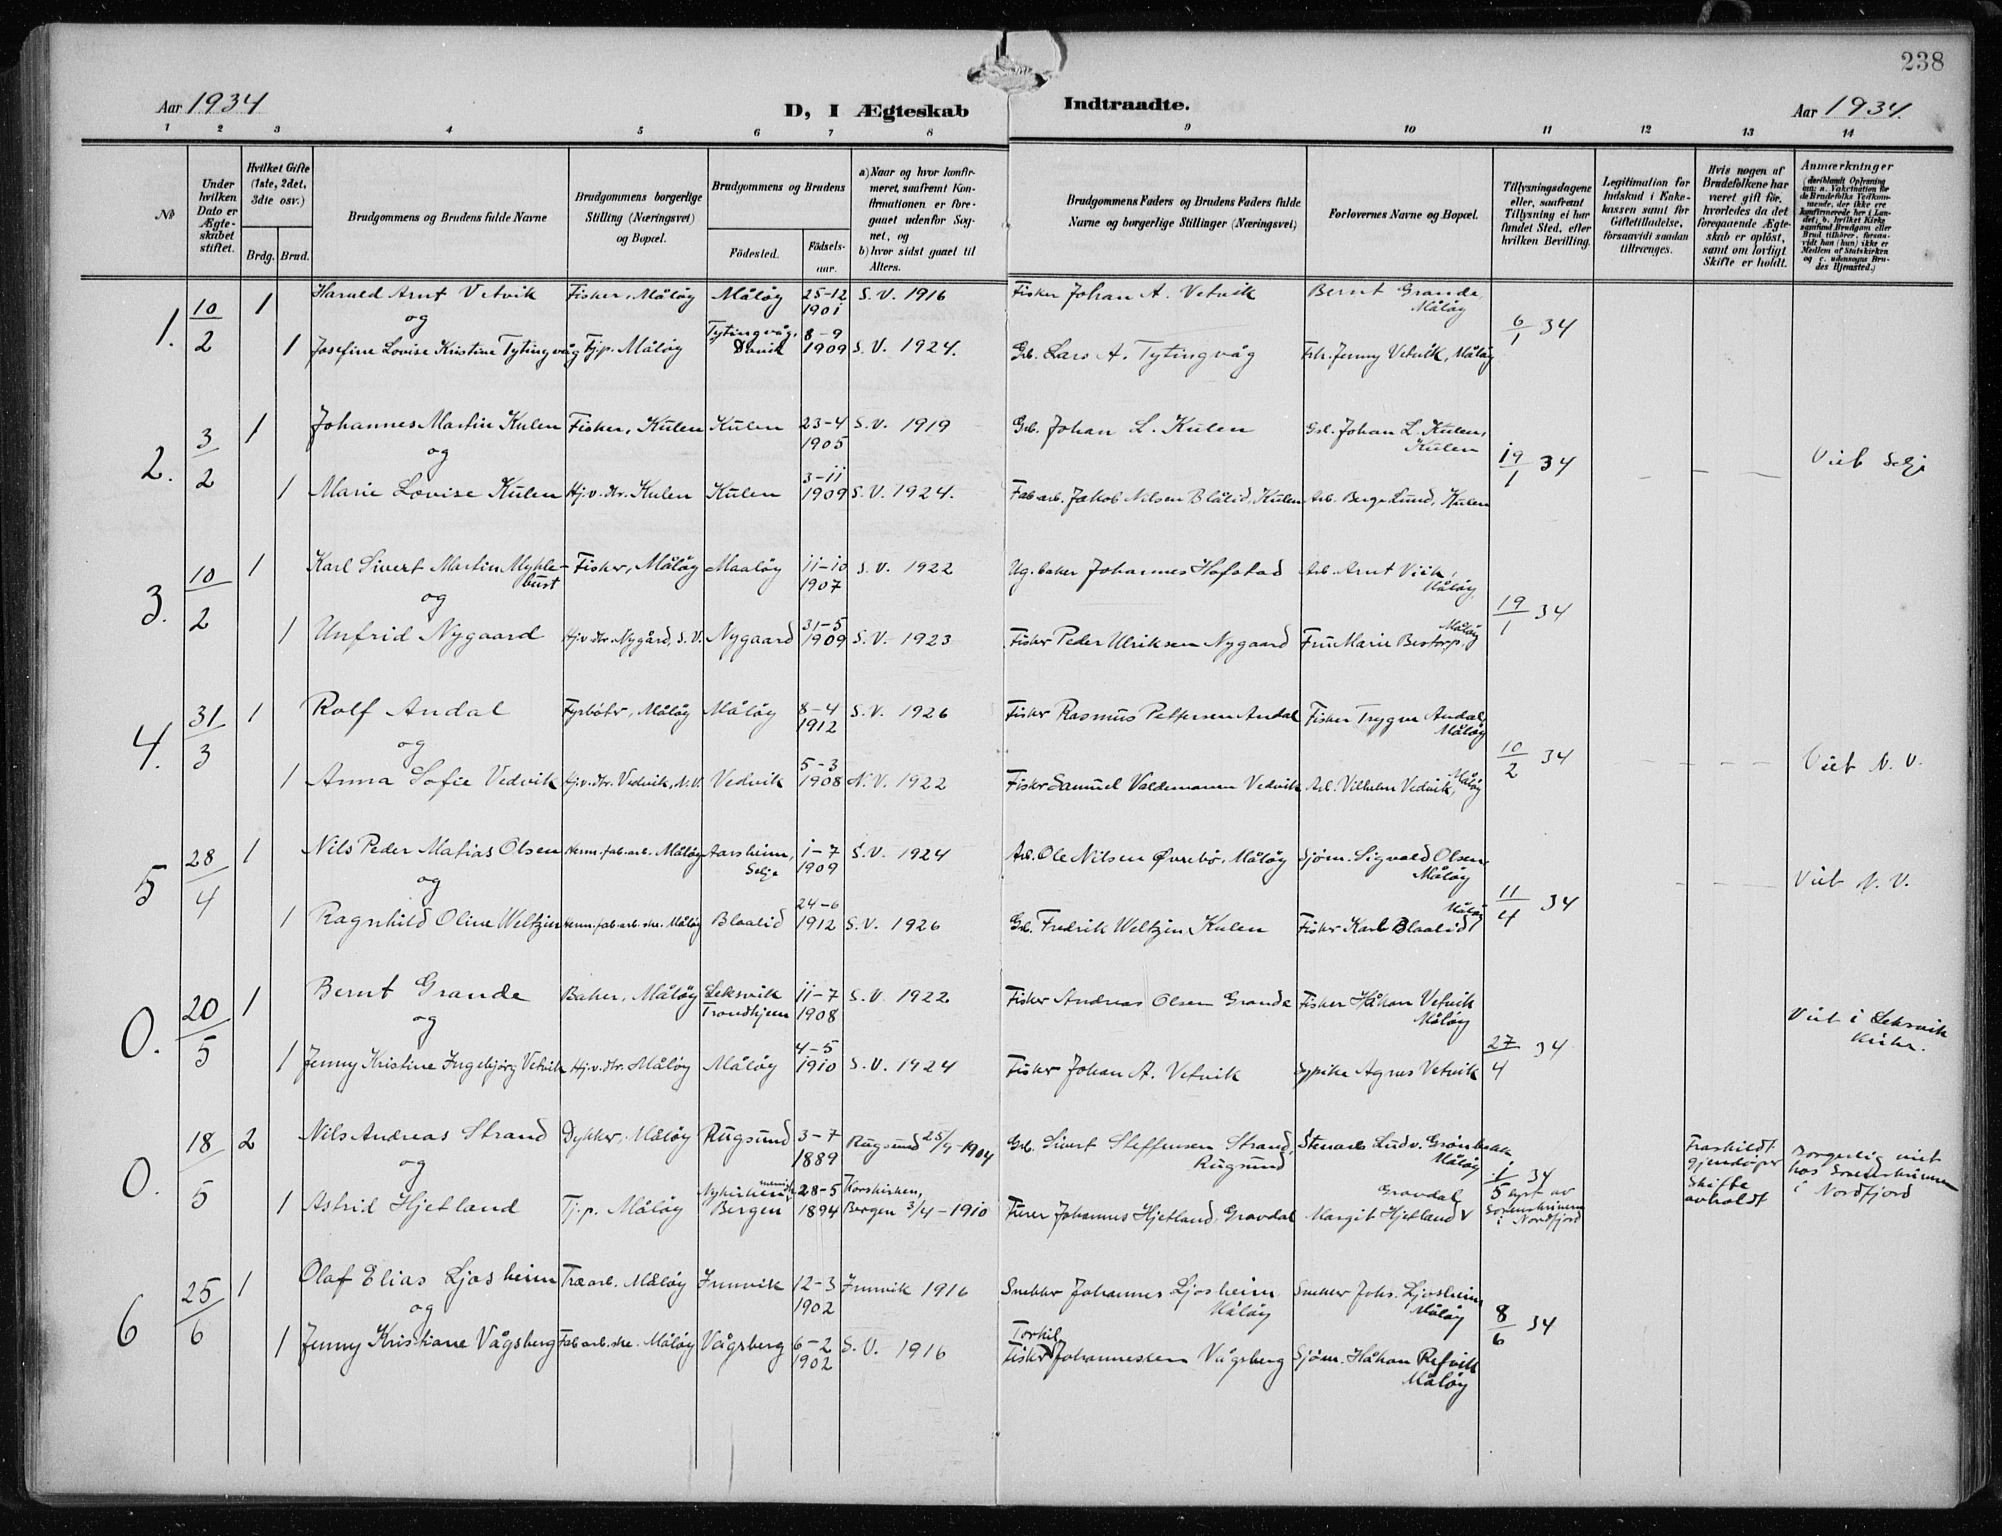 238
Aar 1934
D, I Ægteskab Indtraadte.
Aar 1934.
1 2 3 4 5 6 7 8 9 10 11 12 13 14
No
Under hvilken Dato er Ægteskabet stiftet.
Hvilket Gifte (1ste, 2det, 3dte osv.)
Brdg. Brud.
Brudgommens og Brudens fulde Navne
Brudgommens borgerlige Stilling (Næringsvei) og Bopæl.
Brudgommens og Brudens
Fødested.
Fødselsaar.
a) Naar og hvor konfirmeret, saafremt Konfirmationen er foregaaet udenfor Sognet, og
b) hvor sidst gaaet til Alters.
Brudgommens Faders og Brudens Faders fulde Navne og borgerlige Stillinger (Næringsvei)
Forlovernes Navne og Bopæl.
Tillysningsdagene eller, saafremt Tillysning ei har fundet Sted, efter hvilken Bevilling.
Legitimation for Indskud i Enkekassen samt for Giftetilladelse, forsaavidt saadan tiltrænges.
Hvis nogen af Brudefolkene har været gift før, hvorledes da det foregaaende Ægteskab er opløst, samt om lovligt Skifte er holdt.
Anmærkninger
(deriblandt Oplysning om: a. Vakcination for de Brudefolks Vedkommende, der ikke ere konfirmerede her i Landet; b. hvilket Kirkesamfund Brudgom eller Brud tilhører, forsaavidt han (hun) ikke er Medlem af Statskirken og c. udensogns Brudes Hjemsted.)
1. 10/2 1 Harald Arnt Vetvik Fisker, Måløy Måløy 25-12 1901 S.V. 1916 Fisker Johan A. Vetvik Bernt Grande, Måløy 6/1 34
og
1 Josefine Lovise Kristine Tytingvåg Tj.p. Måløy Tytingvåg, Davik 8-9 1909 S.V. 1924. Gb. Lars A. Tytingvåg Frk. Jenny Vetvik, Måløy
2. 3/2 1 Johannes Martin Kulen Fisker, Kulen Kulen 23-4 1905 S.V. 1919 Gb. Johan L. Kulen Gb. Johan L. Kulen, Kulen 19/1 34 Viet Selje
og
1 Marie Lovise Kulen Hj.v.Ar. Kulen Kulen 3-11 1909 S.V. 1924. Fab.arb. Jakob Nilsen Blålid, Kulen Arb. Berge Lund, Kulen
3. 10/2 1 Karl Sivert Martin Myklebust Fisker, Måløy Maaløy 11-10 1907 S.V. 1922 Ug. baker Johannes Hofstad Arb. Arnt Viik, Måløy 19/1 34
og
1 Unfrid Nygaard Hj.v.Ar. Nygård, S.V. Nygaard 31-5 1909 S.V. 1923 Fisker Peder Ulriksen Nygaard Fru Marie Bestorp. Måløy
4. 31/3 1 Rolf Andal Fyrbøter, Måløy Måløy 8-4 1912 S.V. 1926 Fisker Rasmus Pettersen Andal Fisker Trygve Andal, Måløy 10/2 34 Viet N.V.
og
1 Anna Sofie Vedvik Hj.v.Ar. Vedvik, N.V. Vedvik 5-3 1908 N.V. 1922 Fisker Samuel Valdemann Vedvik Arb. Vilhelm Vedvik, Måløy
5 28/4 1 Nils Peder Matias Olsen Herm.fab.arb. Måløy Aarsheim, Selje 1-7 1909 S.V. 1924 Arb. Ole Nilsen Øvrebø, Måløy Sjøm. Sigvald Olsen Måløy 11/4 34 Viet N.V.
og
1 Ragnhild Oline Weltzin Herm.fab.arb.ske. Måløy Blaalid 24-6 1912 S.V. 1926 Gb. Fredrik Weltzin, Kulen Fisker Karl Blaalid Måløy
0. 20/5 1 Bernt Grande Baker, Måløy Leksvik Trondhjem 11-7 1908 S.V. 1922 Fisker Andreas Olsen Grande Fisker Håkon Vetvik Måløy 27/4 34 Viet i Leksvik Kirke.
og
1 Jenny Kristine Ingebjørg Vetvik Hj.v.Ar. Måløy Måløy 4-5 1910 S.V. 1924 Fisker Johan A. Vetvik Sypike Agnes Vetvik
0. 18/5 2 Nils Andreas Strand Dykker, Måløy Rugsund 3-7 1889 Rugsund 25/9-1904 Gb. Sivert Steffensen Strand, Rugsund Stenarb. Ludv. Grønbakk, Måløy 1/5 34 lyst av Sorenskriveren i Nordfjord Fraskildt gjendøper Skifte avholdt Borgerlig viet hos Sorenskriveren i Nordfjord
og
1 Astrid Hjetland Tj.p. Måløy Nykirkens menigh. Bergen 28-5 1894 Korskirken, Bergen 3/4-1910 Fører Johannes Hjetland, Gravdal Margit Hjetland Gravdal
6 25/6 1 Olaf Elias Ljosheim Træarb. Måløy Innvik 12-3 1902 Innvik 1916 Snekker Johannes Ljosheim Måløy Snekker Johs. Ljosheim Måløy 8/6 34
og
1 Jenny Kristiane Vågsberg Fab.arb.ske. Måløy Vågsberg 6-2 1902 S.V. 1916 Fisker Torkil Johannessen Vågsberg Sjøm. Håkon Refvik Måløy